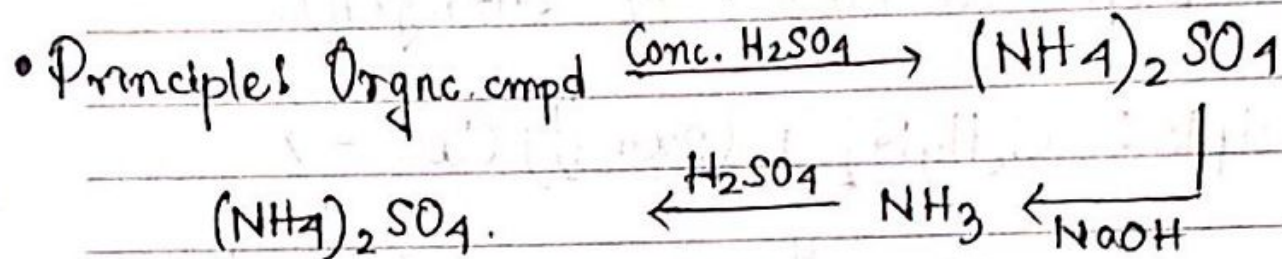 • Principles Orgnc. cmpd Conc. H2SO4 → (NH4)2 SO4
(NH4)2 SO4. ← H2SO4 NH3 ← NaOH